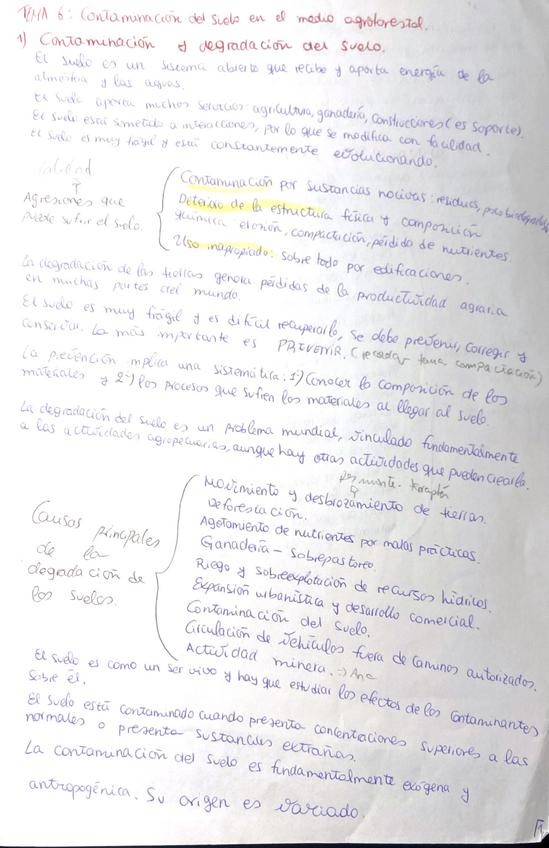 TEMA 6: Contaminación del suelo en el medio agroforestal.
1) Contaminación y degradación del suelo.
El suelo es un sistema abierto que recibe y aporta energía de la
atmosfera y las aguas.
El suelo aporta muchos servicios: agricultura, ganadería, construcciones (es soporte).
El suelo está sometido a interacciones, por lo que se modifica con facilidad.
El suelo es muy frágil y está constantemente evolucionando.
Agresiones que
puede sufrir el suelo.
Contaminación por sustancias nocivas: residuos,
Deterioro de la estructura física y composición
química erosión, compactación, pérdida de nutrientes.
Uso inapropiado: sobre todo por edificaciones.
La degradación de las tierras genera pérdidas de la productividad agraria
en muchas partes del mundo.
El suelo es muy frágil y es difícil recuperarlo, se debe prevenir, corregir y
conservar. Lo más importante es PREVENIR. (recordar tema compactación)
La prevención implica una sistemática: 1º) Conocer la composición de los
materiales y 2º) los procesos que sufren los materiales al llegar al suelo.
La degradación del suelo es un problema mundial, vinculado fundamentalmente
a las actividades agropecuarias, aunque hay otras actividades que pueden crearla.
Causas principales
de la
degradación de
los suelos.
Movimiento y desbrozamiento de tierras.
Deforestación.
Agotamiento de nutrientes por malas prácticas.
Ganadería - Sobrepastoreo.
Riego y sobreexplotación de recursos hídricos.
Expansión urbanística y desarrollo comercial.
Contaminación del suelo.
Circulación de vehículos fuera de caminos autorizados.
Actividad minera.
El suelo es como un ser vivo y hay que estudiar los efectos de los contaminantes
sobre él.
El suelo está contaminado cuando presenta concentraciones superiores a las
normales o presenta sustancias extrañas.
La contaminación del suelo es fundamentalmente exógena y
antropogénica. Su origen es variado.